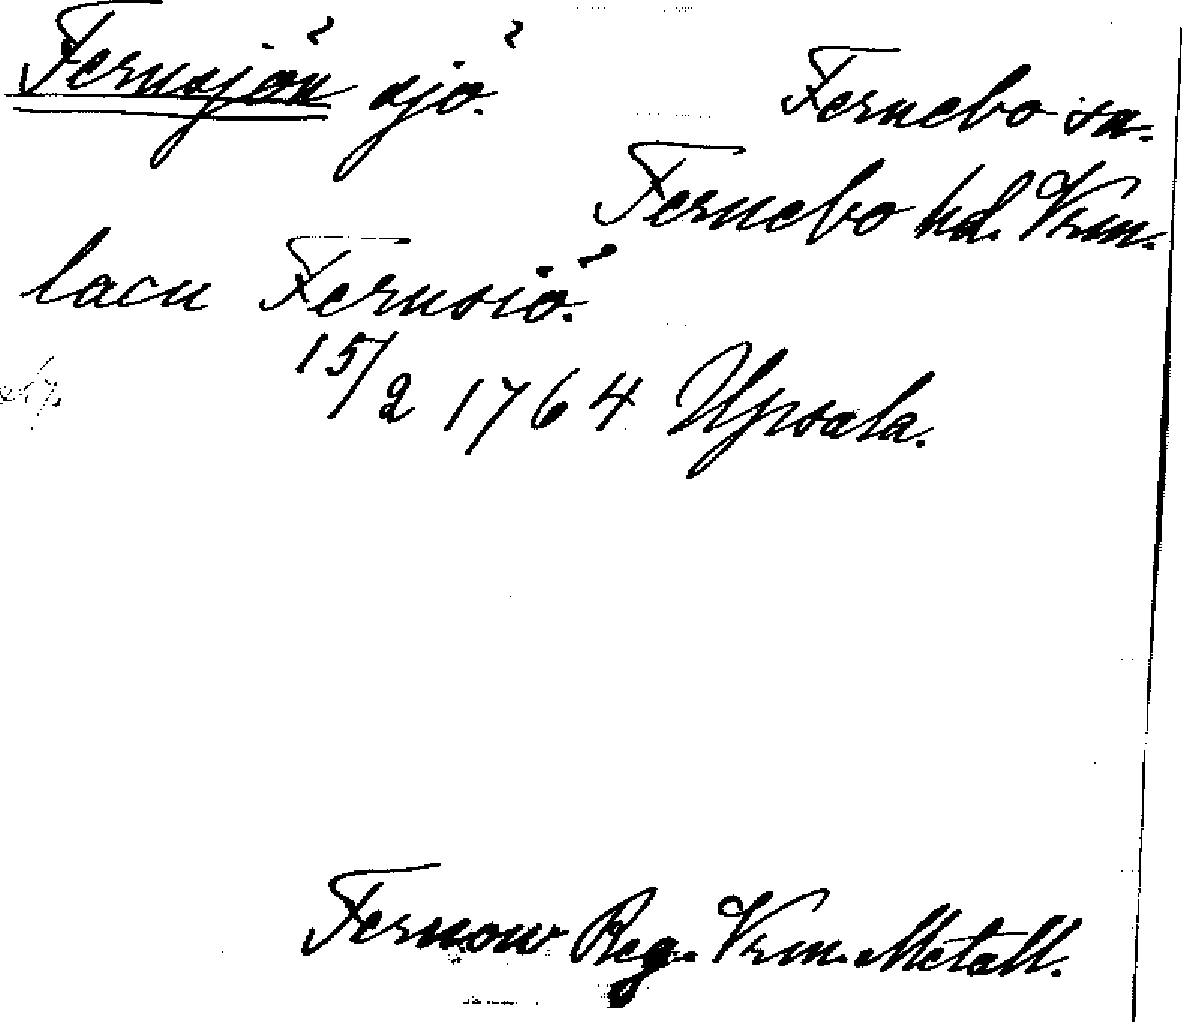 Fernsjön sjö.
Fernebo sn.
Fernebo hd. Vrm.
lacu Fernsiö.
15/2 1764 Upsala.
Fernow Reg. Vrm. Metall.